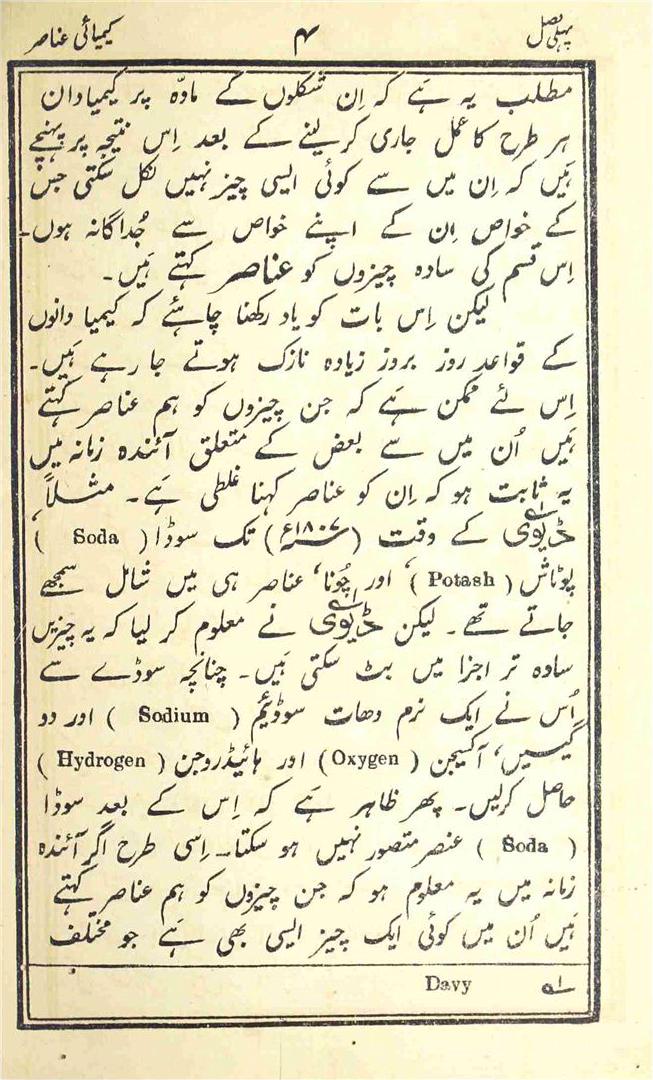 پہلی فصل ۴ کیمیائی عناصر
مطلب یہ ہَے کہ اِن شکلوں کے مادّہ پر کیمیادان
ہر طرح کا عمل جاری کر لینے کے بعد اِس نتیجہ پر پہنچے
ہَیں کہ اِن میں سے کوئی ایسی چیز نہیں نکل سکتی جس
کے خواص اِن کے اپنے خواص سے جُداگانہ ہوں۔
اِس قسم کی سادہ چیزوں کو عناصر کہتے ہَیں۔
لیکن اِس بات کو یاد رکھنا چاہئے کہ کیمیا دانوں
کے قواعد روز بروز زیادہ نازک ہوتے جا رہے ہَیں۔
اِس لئے ممکن ہَے کہ جن چیزوں کو ہم عناصر کہتے
ہَیں اُن میں سے بعض کے متعلق آئندہ زمانہ میں
یہ ثابت ہو کہ اِن کو عناصر کہنا غلطی ہَے۔ مثلاً
ڈیوی؂۱ کے وقت (؁۱۸۰۷ء) تک سوڈا ( Soda )،
پوٹاش ( Potash )، اور چُونا، عناصر ہی میں شامل سمجھے
جاتے تھے۔ لیکن ڈیوی؂۱ نے معلوم کر لیا کہ یہ چیزیں
سادہ تر اجزا میں بٹ سکتی ہَیں۔ چنانچہ سوڈے سے
اُس نے ایک نرم دھات سوڈیَم ( Sodium ) اور دو
گیسیں، آکسیجن ( Oxygen ) اور ہائیڈروجن ( Hydrogen )
حاصل کرلیں۔ پھر ظاہر ہَے کہ اِس کے بعد سوڈا
( Soda ) عنصر متصور نہیں ہو سکتا۔ اِسی طرح اگر آئندہ
زمانہ میں یہ معلوم ہو کہ جن چیزوں کو ہم عناصر کہتے
ہَیں اُن میں کوئی ایک چیز ایسی بھی ہَے جو مختلف
؂۱ Davy